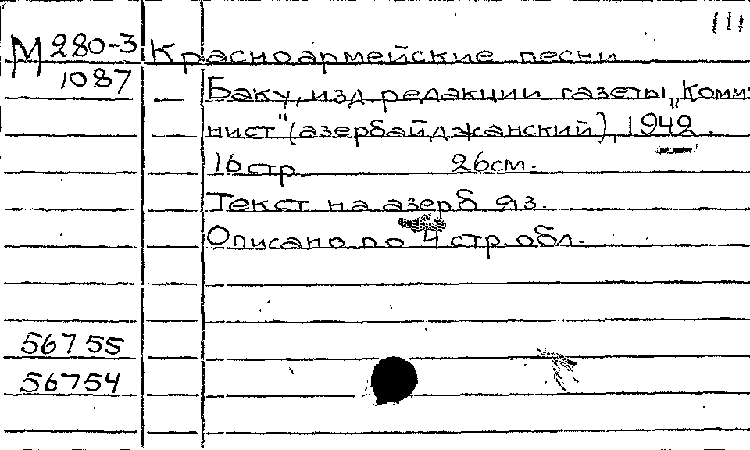 М 280-3 Красноармейские песни
1087
Баку, изд. редакции газеты „Комму
нист" (азербайджанский), 1942.
16 стр. 26 см.
Текст на азерб. яз.
Описано по 4 стр. обл.
56755
56754